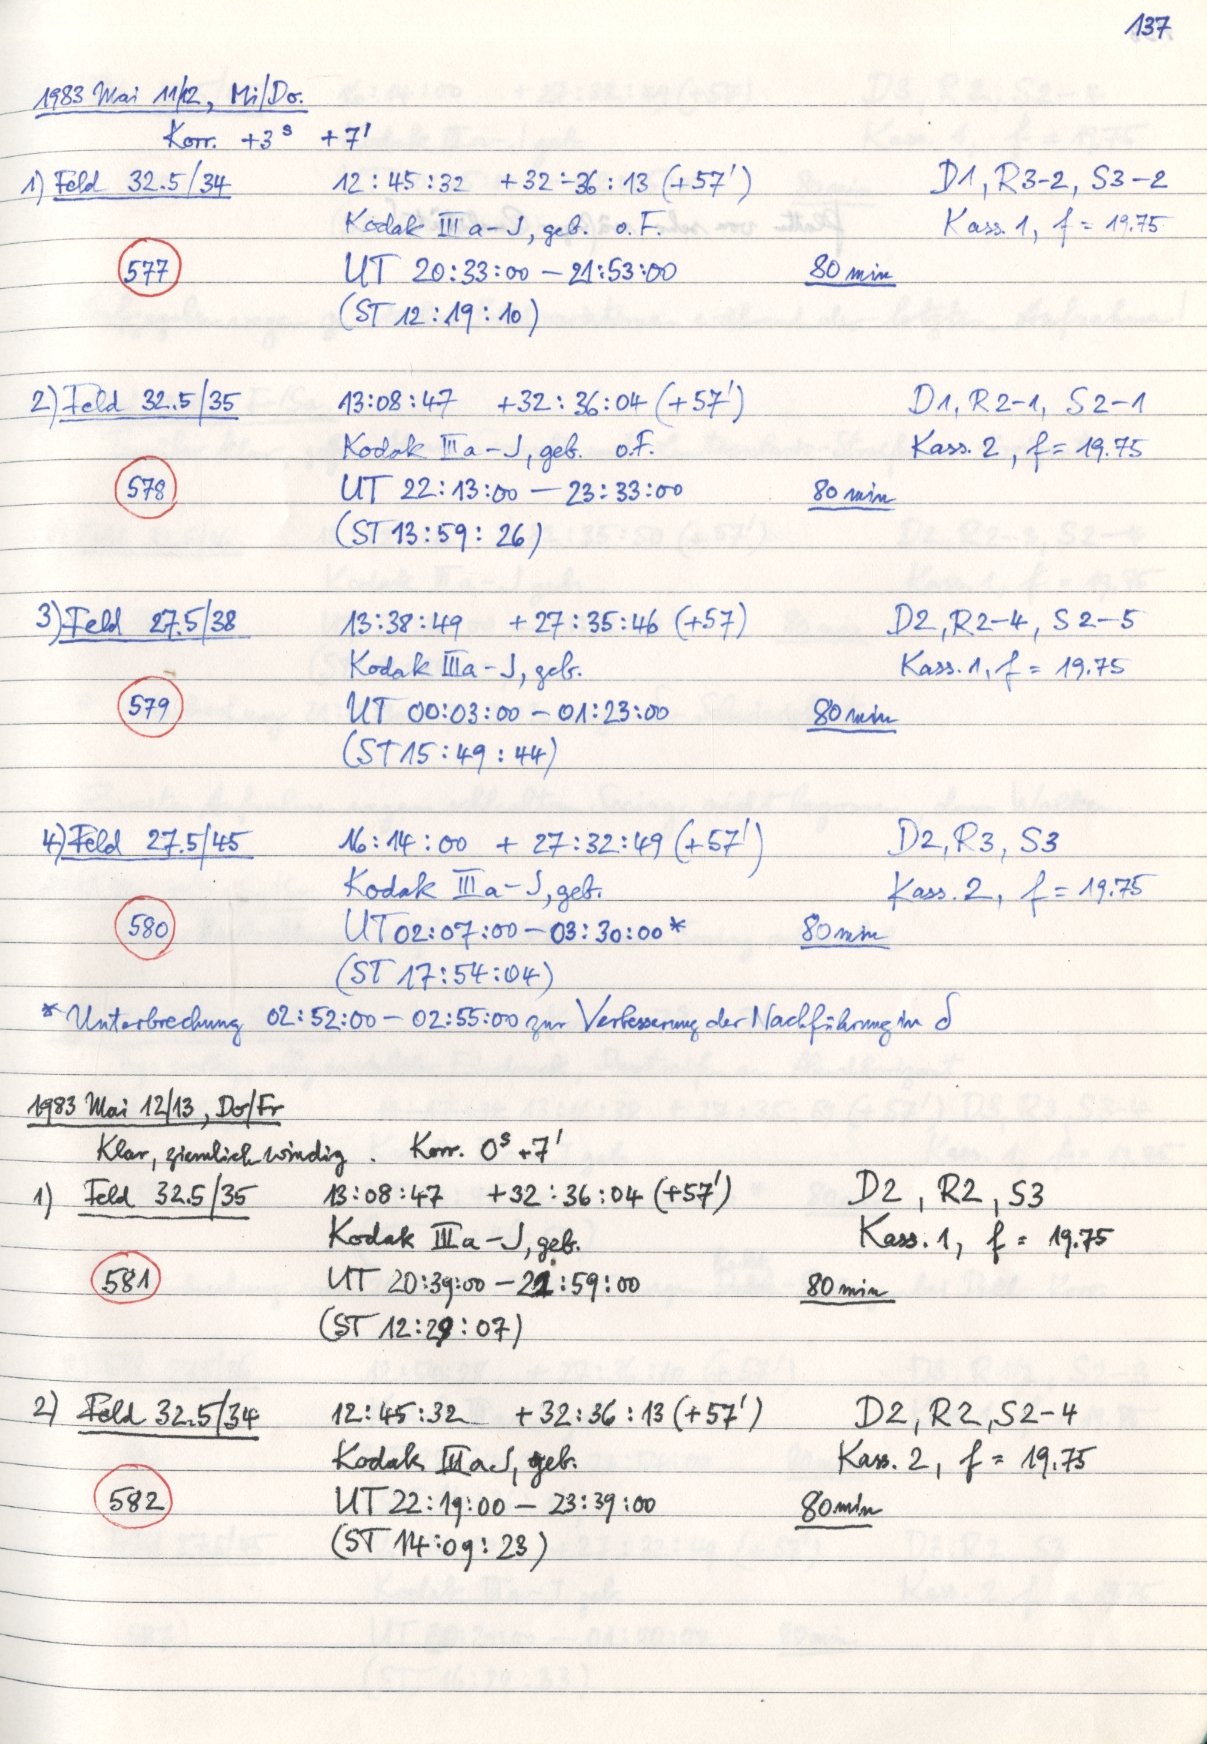 137
1983 Mai 11/12, Mi/Do.
Korr. +3ˢ +7'
1) Feld 32.5/34 12:45:32 +32:36:13 (+57') D1, R3-2, S3-2
Kodak IIIa-J, geb. o.F. Kass. 1, f = 19.75
577 UT 20:33:00 – 21:53:00 80 min
(ST 12:19:10)
2) Feld 32.5/35 13:08:47 +32:36:04 (+57') D1, R2-1, S2-1
Kodak IIIa-J, geb. o.F. Kass. 2, f = 19.75
578 UT 22:13:00 – 23:33:00 80 min
(ST 13:59:26)
3) Feld 27.5/38 13:38:49 +27:35:46 (+57) D2, R2-4, S2-5
Kodak IIIa-J, geb. Kass. 1, f = 19.75
579 UT 00:03:00 – 01:23:00 80 min
(ST 15:49:44)
4) Feld 27.5/45 16:14:00 +27:32:49 (+57') D2, R3, S3
Kodak IIIa-J, geb. Kass. 2, f = 19.75
580 UT 02:07:00 – 03:30:00* 80 min
(ST 17:54:04)
* Unterbrechung 02:52:00 – 02:55:00 zur Verbesserung der Nachführung in δ
1983 Mai 12/13, Do/Fr
Klar, ziemlich windig. Korr. 0ˢ +7'
1) Feld 32.5/35 13:08:47 +32:36:04 (+57') D2, R2, S3
Kodak IIIa-J, geb. Kass. 1, f = 19.75
581 UT 20:39:00 – 21:59:00 80 min
(ST 12:29:07)
2) Feld 32.5/34 12:45:32 +32:36:13 (+57') D2, R2, S2-4
Kodak IIIaJ, geb. Kass. 2, f = 19.75
582 UT 22:19:00 – 23:39:00 80 min
(ST 14:09:23)